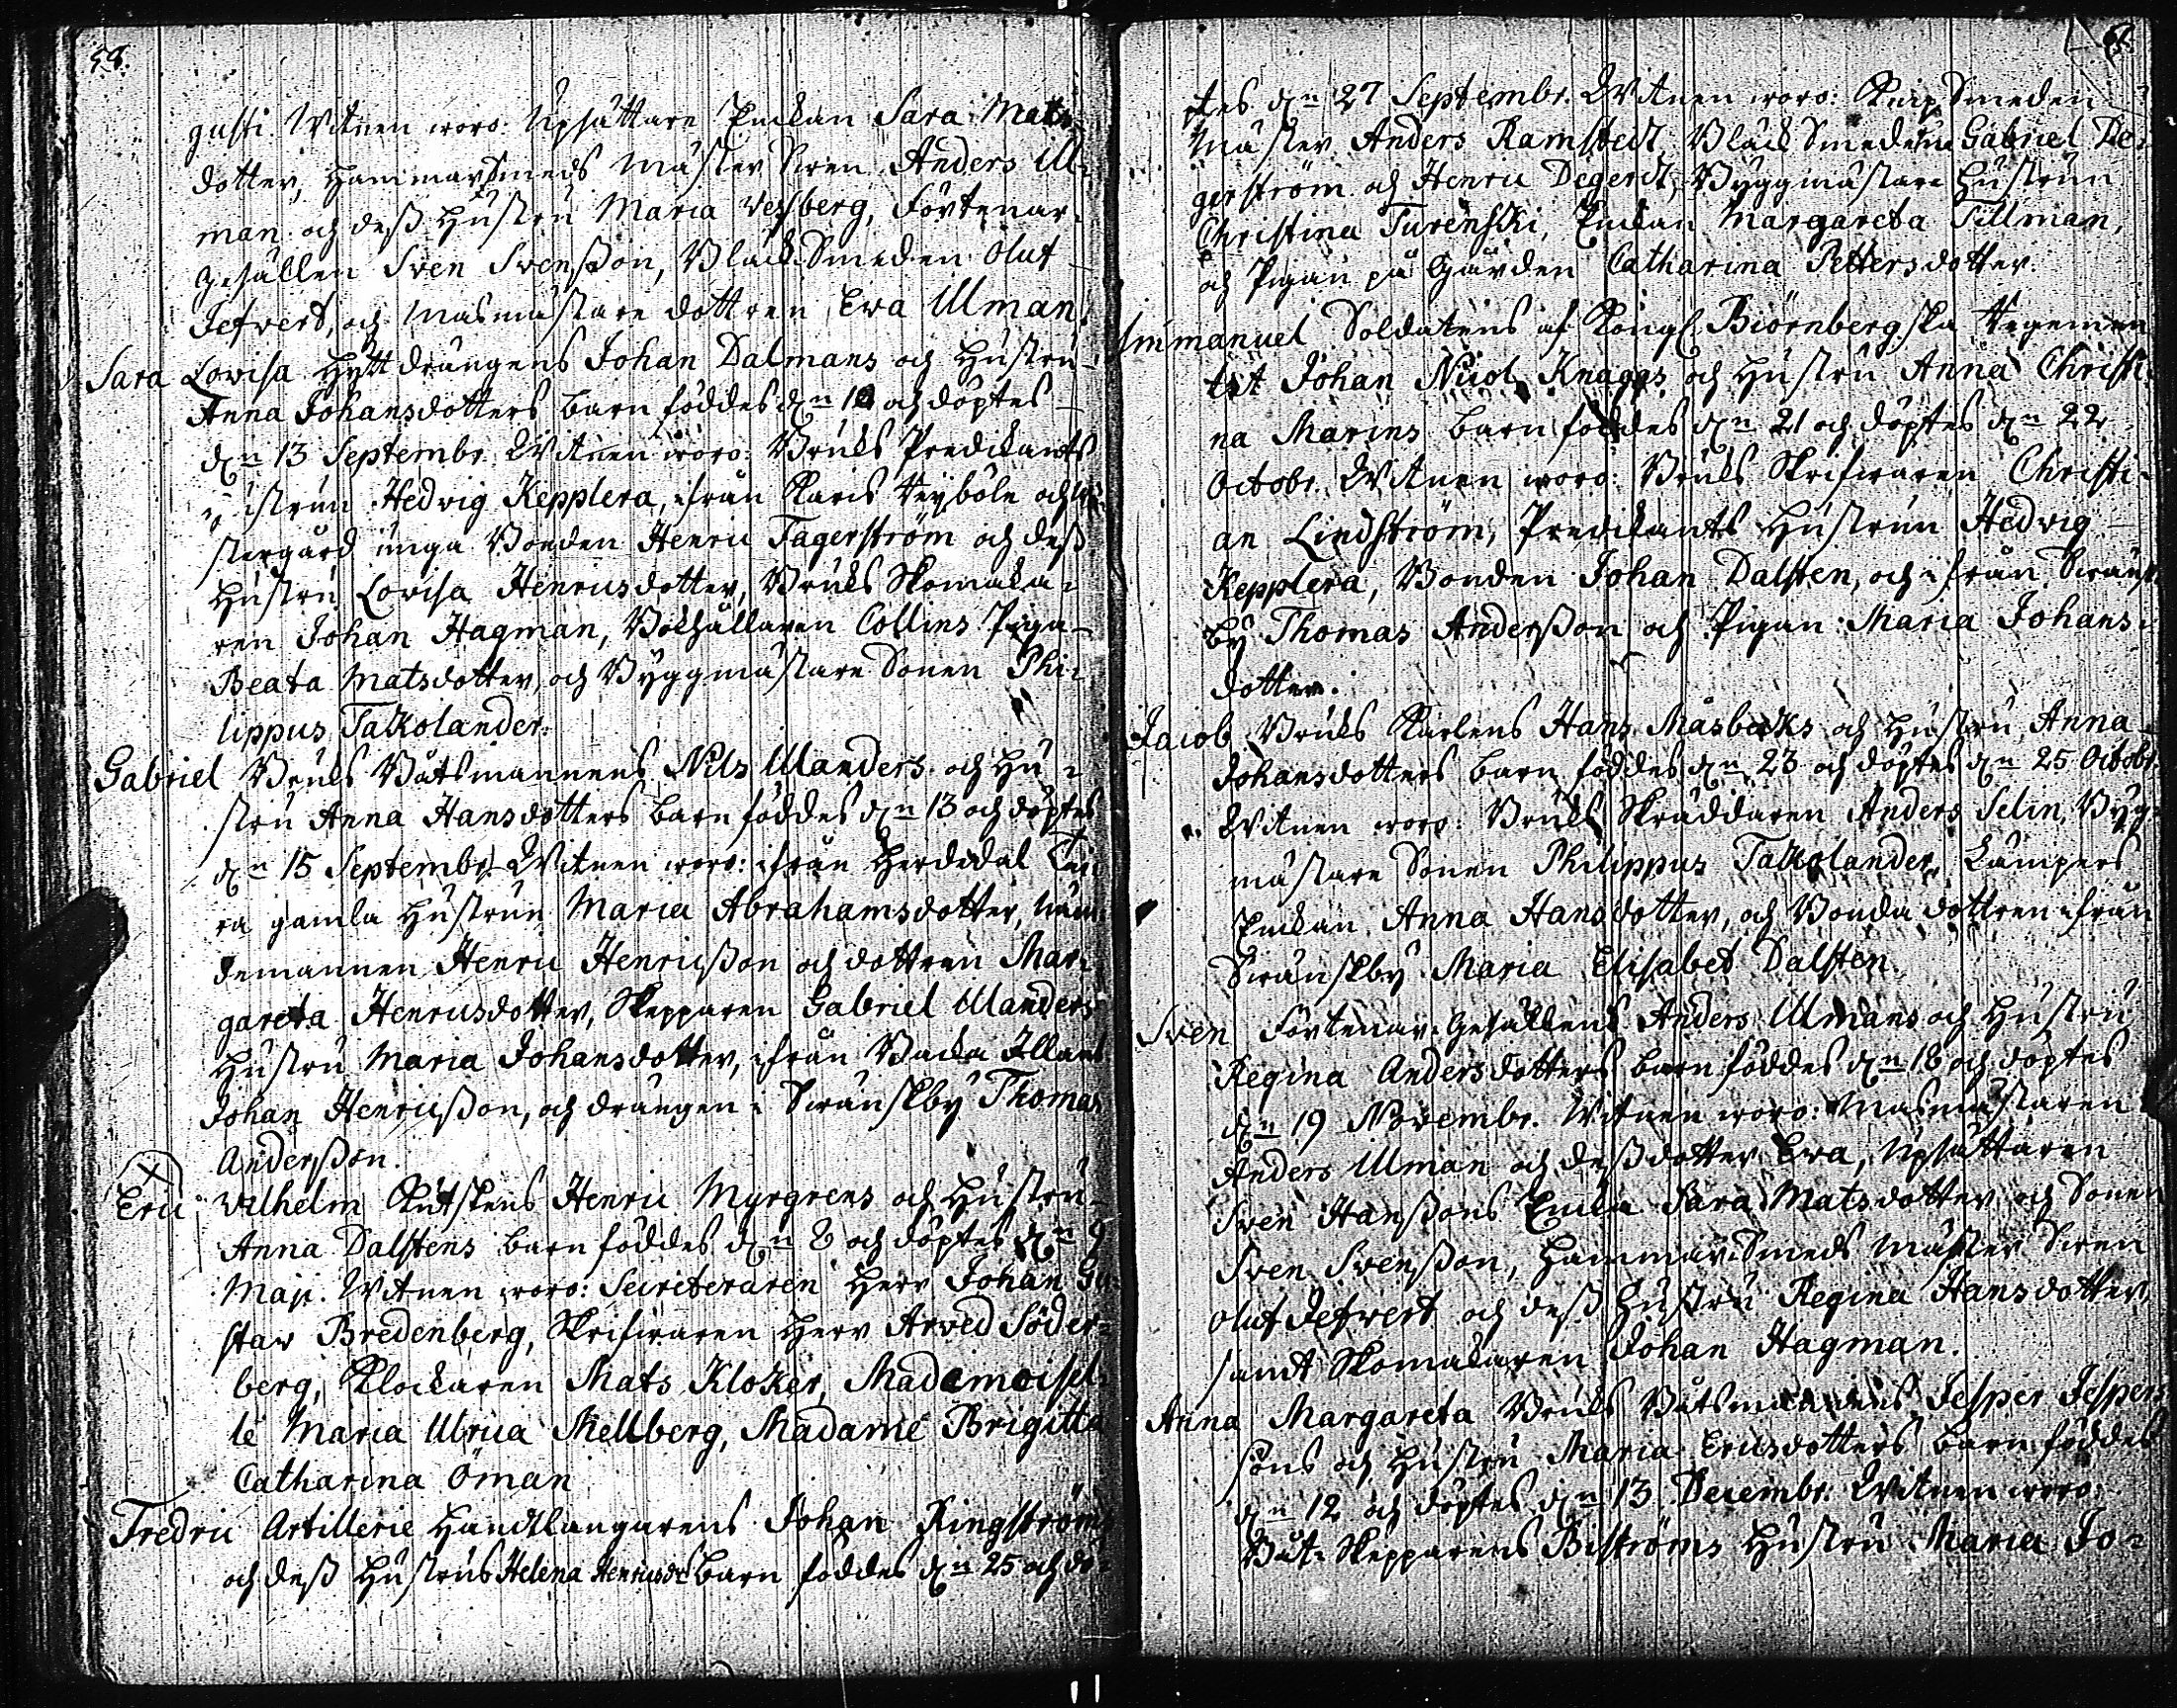 58.
gusti. Witnen woro: Upsättare Enckan Sara Mats
dotter, Hammarsmeds Mäster Swen Anders Ul=
man och dess Hustru Maria Vesberg, Förtenar=
gesällen Sven Svensson, Bläck Smeden Oluf
Jefvert, och Masmästare dottren Eva Ulman.
Sara Lovisa Hytt drängens Johan Dalmans och Hustru
Anna Johansdotters barn föddes d:n 12 och döptes
d:n 13 Septembr. Witnen woro: Bruks Predikants
Hustrun Hedvig Kepplera, ifrån Karis
stergård unga Bonden Henric Fagerström och dess
Hustru Lovisa Henricsdotter, Bruks Skomaka=
ren Johan Hagman, Bokhållaren Collins Piga
Beata Matsdotter, och Byggmästare Sonen Phi=
lippus Talkolander.
Gabriel Bruks Båtsmannens Nils Ulanders och Hu=
stru Anna Hansdotters barn föddes d:n 13 och döptes
d:n 15 Septembr. Witnen woro: ifrån
ra gamla Hustrun Maria Abrahamsdotter, Näm=
demannen Henric Henricsson och dottren Mar=
gareta Henricsdotter, Skepparen Gabriel Ulanders
Hustru Maria Johansdotter, ifrån Backa
Johan Henricsson, och drängen i Svänskby Thomas
Andersson.
Eric Vilhelm Kutskens Henric Myrgrens och Hustru
Anna Dalstens barn föddes d:n 8 och döptes d:n 9
Maji. Witnen woro: Secreteraren Herr Johan Gu
stav Bredenberg, Skrifvaren Herr Arved Söder=
berg, Klockaren Mats Kloker, Mademoisel
le Maria Ulrica Mellberg, Madame Brigitta
Catharina Öman
Fredric Artillerie Handtlangarens Johan Ringströms
och dess Hustrus Helena Henricsdr barn föddes d:n 25 och dö=
ptes d:n 27 Septembr. Witnen woro: Knip Smeden
Mäster Anders Ramstedt, Bläck Smederne Gabriel De=
gerström och Henric Degerdt, Byggmästare Hustrun
Christina Turenski, Enckan Margareta Tillman,
och Pigan på Gården Catharina Pettersdotter.
Immanuel Soldatens af Kongl. Biörnebergska Regemen
tet Johan Nicol. Knaggs och Hustru Anna Christi
na Marins barn föddes d:n 21 och döptes d:n 22
Octobr. Witnen woro: Bruks Skrifvaren Christi=
an Lindström, Predikants Hustrun Hedvig
Kepplera, Bonden Johan Dalsten, och ifrån Svänsk
by Thomas Andersson och Pigan Maria Johans=
dotter.
Jacob Bruks Karlens Hans Måsbacks och Hustru Anna
Johansdotters barn föddes d:n 23 och döptes d:n 25 Octobr.
Witnen woro: Bruks Skräddaren Anders Selin, Byg
mästare Sonen Philippus Talkolander,
Enckan Anna Hansdotter, och Bonda dottren ifrån
Svänskby Maria Elisabet Dalsten.
Sven Förtenar=gesällens Anders Ulmans och Hustru
Regina Andersdotters barn föddes d:n 18 och döptes
d:n 19 Novembr. Witnen woro: Masmästaren
Anders Ulman och dess dotter Eva, Upsättaren
Sven Hanssons Encka Sara Matsdotter och Sonen
Sven Svensson, Hammar Smeds Mäster Swen
Oluf Jefvert och dess Hustru Regina Hansdotter
samt Skomakaren Johan Hagman.
Anna Margareta Bruks Båtsmannens Jesper Jespers
sons och Hustru Maria Ericsdotters barn föddes
d:n 12 och döptes d:n 13 Decembr. Witnen woro:
Båt=Skepparens Biströms Hustru Maria Jo=